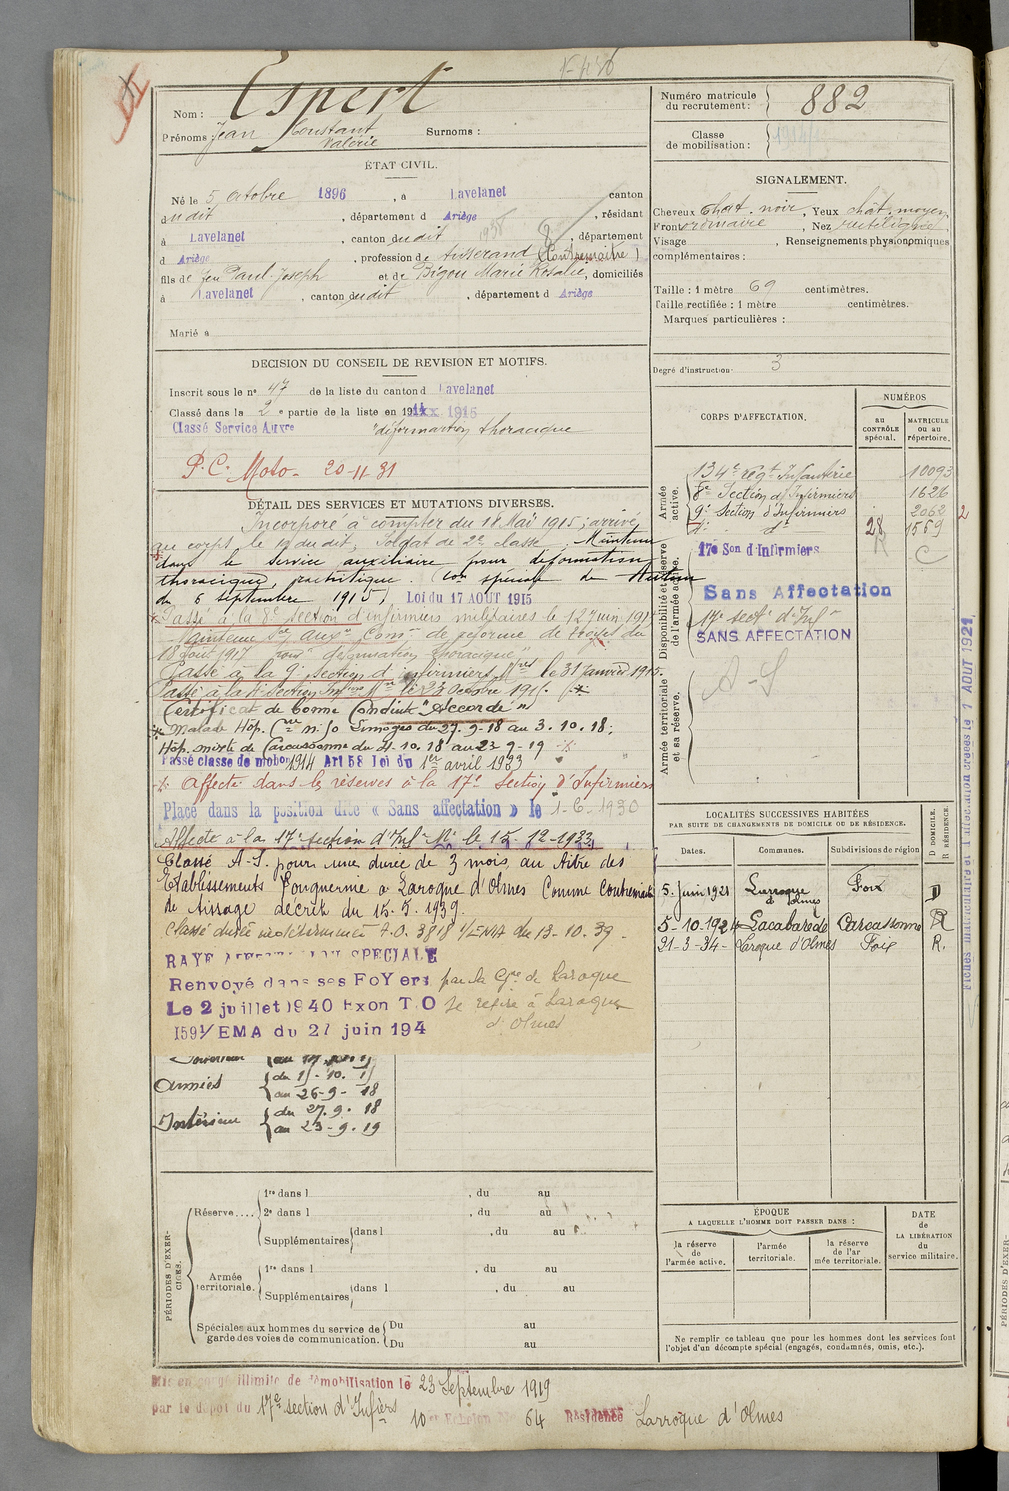 Nom : Espert
Prénoms : Jean Constant Surnoms :
Valérie
Numéro matricule du recrutement : 882
Classe de mobilisation :
ÉTAT CIVIL.
Né le 5 octobre 1896, à Lavelanet canton
dudit, département d Ariège, résidant
à Lavelanet, canton dudit, département
d Ariège, profession de tisserand (Contremaître)
fils de feu Paul-Joseph et de Bigou Marie Rosalie, domiciliés
à Lavelanet, canton dudit, département d Ariège
Marié à
SIGNALEMENT.
Cheveux chat. noir, Yeux chât. moyen
Front ordinaire, Nez rectiligne
Visage , Renseignements physionomiques
complémentaires :
Taille : 1 mètre 69 centimètres.
Taille rectifiée : 1 mètre centimètres.
Marques particulières :
Degré d'instruction 3
DÉCISION DU CONSEIL DE REVISION ET MOTIFS.
Inscrit sous le n° 47 de la liste du canton d Lavelanet
Classé dans la 2e partie de la liste en 1915
Classé Service Auxre "déformation thoracique
P.C. Moto - 20-11-31
DÉTAIL DES SERVICES ET MUTATIONS DIVERSES.
Incorporé à compter du 18 Mai 1915; arrivé
au corps le 19 dudit, Soldat de 2e classe. Maintenu
dans le service auxiliaire pour déformation
thoracique, rachitique. (Con spéciale de
du 6 septembre 1915) Loi du 17 AOUT 1915
Passé à la 8e section d'infirmiers militaires le 12 Juin 1917
Maintenu Sce auxre Comon de réforme de Troyes du
18 Août 1917 pour "déformation thoracique"
Passé à la 9e section d'infirmiers Mres le 31 Janvier 1918.
Certificat de bonne Conduite "Accordé"
Malade Hôp. Cre n. 50 Limoges du 27.9-18 au 3.10.18;
Hôp. mixte de Carcassonne du 4.10.18 au 23-9-19
Passé classe de mobon 1914 Art 58 loi du 1er avril 1923
Affecté dans les réserves à la 17e Section d'Infirmiers
Placé dans la position dite « Sans affectation » le 1-6-1930
Affecté à la 17e section d'Infrs Mres le 15-12-1933
Classé A-S. pour une durée de 3 mois au titre des
Etablissements Fouquernie à Laroque d'Olmes Comme Contremaitre
de tissage décrit du 15.5.1939.
Classé durée indéterminée A.O. 3818 1/EMA du 13-10.39.
RAYE AFFECTATION SPECIALE
Renvoyé dans ses FoYers par la Gie de Laroque
Le 2 juillet 1940 Exon T.O Se retire à Laroque
1591/EMA du 27 juin 194 d'Olmes
Armées du 15-10.17
au 26-9-18
Intérieur du 27.9.18
au 23-9.19
CORPS D'AFFECTATION.
NUMÉROS
au CONTRÔLE spécial.
MATRICULE ou au répertoire.
Armée active.
134e régt Infanterie 10093
8e Section d'Infirmiers 1626
9e Section d'Infirmiers 2062
do 28 1559
Disponibilité et réserve de l'armée active.
17e Son d'Infirmiers
Sans Affectation
17e sect. d'Infr
SANS AFFECTATION
Armée territoriale et sa réserve.
A-S
LOCALITÉS SUCCESSIVES HABITÉES
PAR SUITE DE CHANGEMENTS DE DOMICILE OU DE RÉSIDENCE.
Dates. Communes. Subdivisions de région D DOMICILE. R RÉSIDENCE.
5. Juin 1921 Larroque d'Olmes Foix D
5-10-1924 Lacabarède Carcassonne R
21-3-34- Laroque d'Olmes Foix R.
Fiches matriculaire et d'affectation créées le 1 AOUT 1921.
PÉRIODES D'EXERCICES.
Réserve.... 1re dans l , du au
2e dans l , du au
Supplémentaires dans l , du au
Armée territoriale. 1re dans l , du au
Supplémentaires dans l , du au
Spéciales aux hommes du service de garde des voies de communication. Du au
Du au
ÉPOQUE
A LAQUELLE L'HOMME DOIT PASSER DANS :
la réserve de l'armée active.
l'armée territoriale.
la réserve de l'armée territoriale.
DATE de LA LIBÉRATION du service militaire.
Ne remplir ce tableau que pour les hommes dont les services font
l'objet d'un décompte spécial (engagés, condamnés, omis, etc.).
Mis en congé illimité de démobilisation le 23 Septembre 1919
par le dépôt du 17e section d'Infiers 10e Echelon N° 64 Résidence Larroque d'Olmes